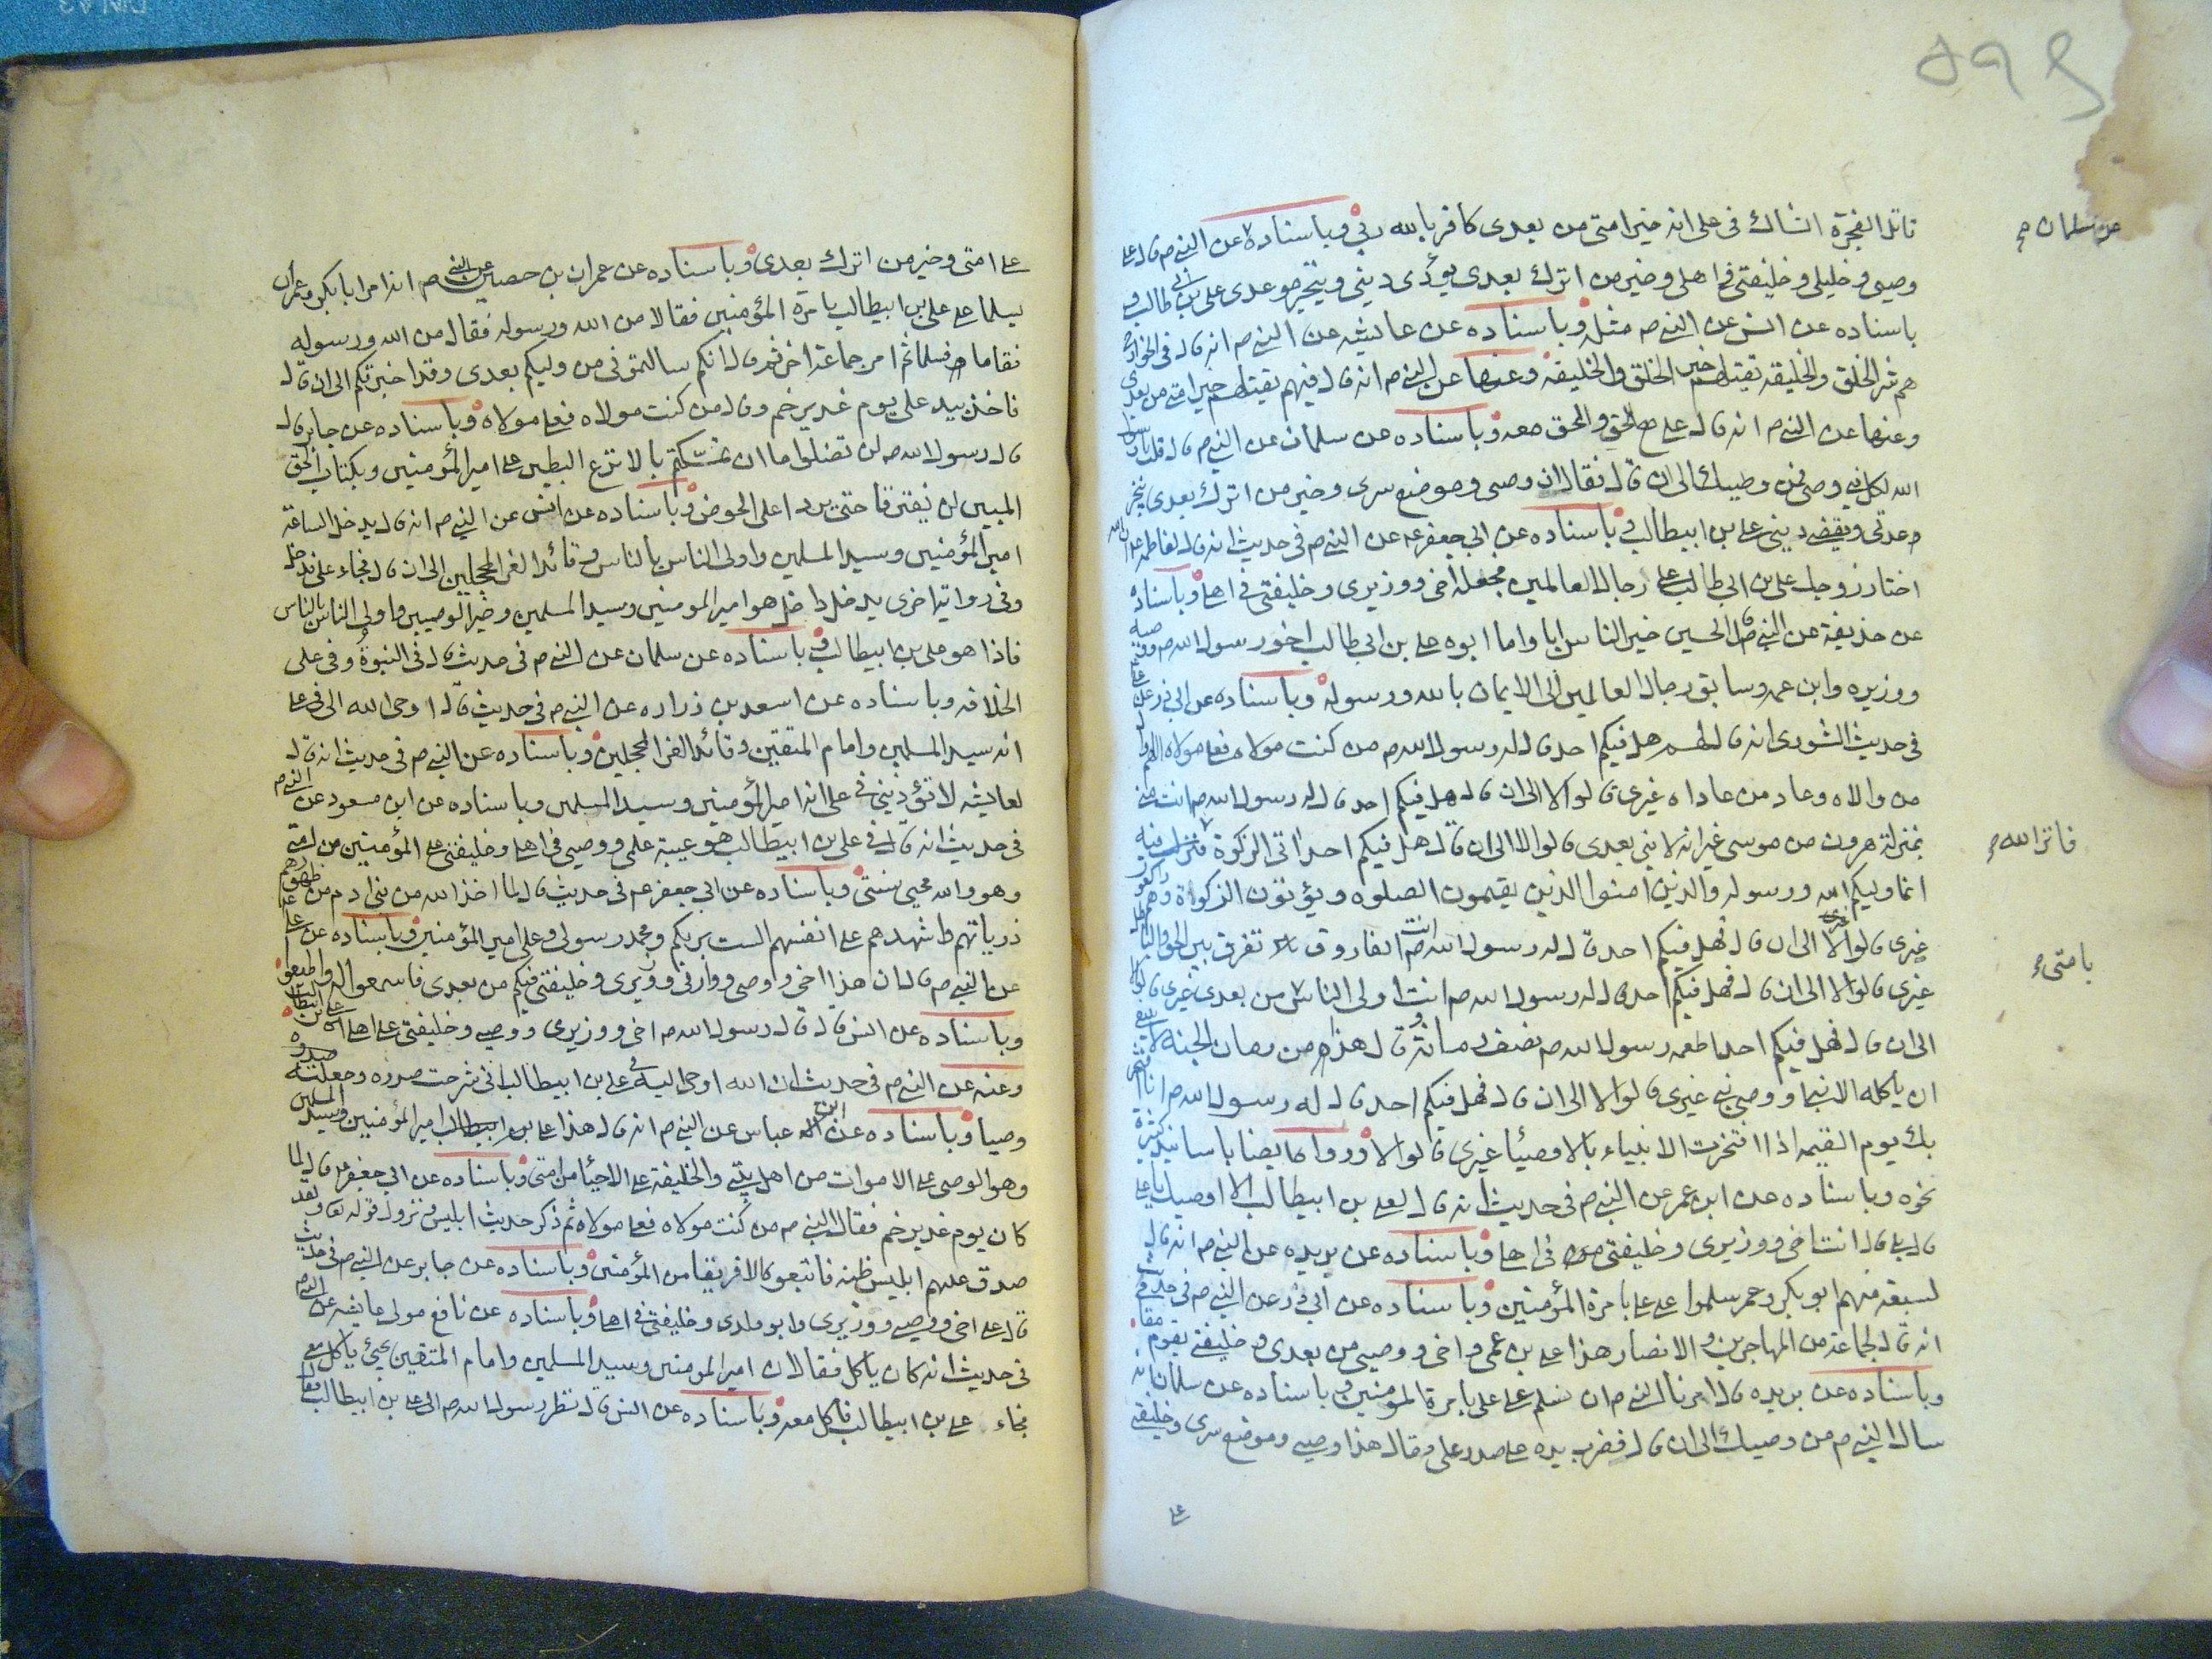 ۵۹۶
قاتل الفجرة الشاك فى على انه خير امتى من بعدى كافر بالله ربى وباسناده عن النبى ص قال على
عن سلمان
وصيى وخليلى وخليفتى فى اهلى وخير من اترك بعدى يؤدى دينى وينجز موعدى على بن ابى طالب و
باسناده عن انس عن النبى ص مثله وباسناده عن عايشه عن النبى ص انه قال فى الخوارج
هم شر الخلق والخليقه يقتلهم خير الخلق والخليفة وعنها عن النبى ص انه قال فيهم يقتلهم خير امتى من بعدى
وعنها عن النبى ص انه قال على مع الحق والحق معه وباسناده عن سلمان عن النبى ص قال قلت يا رسول
الله لكل نبى وصى فمن وصيك الى ان قال فقال ان وصيى وموضع سرى وخير من اترك بعدى ينجز
عدتى ويقضى دينى على بن ابيطالب وباسناده عن ابى جعفر عن النبى ص فى حديث انه قال لفاطمه ان الله
اختار زوجك على بن ابى طالب على رجال العالمين فجعله اخى ووزيرى وخليفتى فى اهلى وباسناده
عن حذيفة عن النبى ص قال الحسين خير الناس ابا واما ابوه على بن ابى طالب اخو رسول الله ص ووصيه
ووزيره وابن عمه وسابق رجال العالمين الى الايمان بالله ورسوله وباسناده عن ابى ذر عن على
فى حديث الشورى انه قال لهم هل فيكم احد قال له رسول الله ص من كنت مولاه فعلى مولاه اللهم وال
من والاه وعاد من عاداه غيرى قالوا لا الى ان قال فهل فيكم احد قال له رسول الله ص انت منى
بمنزلة هرون من موسى غير انه لا نبى بعدى قالوا لا الى ان قال فهل فيكم احد اتى الزكوة فنزلت فيه
فانزالله
انما وليكم الله ورسوله والذين امنوا الذين يقيمون الصلوه ويؤتون الزكواة وهم راكعون
غيرى قالوا لا الى ان قال فهل فيكم احد قال له رسول الله ص انت الفاروق تفرق بين الحق والباطل
غيرى قالوا لا الى ان قال فهل فيكم احد قال له رسول الله ص انت اولى الناس من بعدى غيرى قالوا لا
بامتى
الى ان قال فهل فيكم احد اطعمه رسول الله ص نصف رمانة وقال هذا من رمان الجنه لا ينبغى
ان ياكله الا نبى او وصى نبى غيرى قالوا لا الى ان قال فهل فيكم احد قال له رسول الله ص انا افتخر
بك يوم القيمه اذا افتخرت الانبياء بالاوصياء غيرى قالوا لا ورواه ايضا باسانيد كثيرة
نحوه وباسناده عن ابن عمر عن النبى ص فى حديث انه قال لعلى بن ابيطالب الا اوصيك يا على
قال بلى قال انت اخى ووزيرى وخليفتى فى اهلى وباسناده عن بريده عن النبى ص انه قال
لسبعة منهم ابو بكر وعمر سلموا على على بامرة المؤمنين وباسناده عن ابى ذر عن النبى ص فى حديث
انه قال لجماعة من المهاجرين والانصار هذا على بن عمى واخى ووصيى من بعدى وخليفتى يقوم مقامى
وباسناده عن بريده قال امرنا النبى ص ان نسلم على على بامرة المومنين وباسناده عن سلمان انه
سال النبى ص من وصيك الى ان قال فضرب بيده على صدر على وقال هذا وصيى وموضع سرى وخليفتى
على
على امتى وخير من اترك بعدى وباسناده عن عمران بن حصين عن النبى ص انه امر ابا بكر وعمر ان
يسلما على على بن ابيطالب بامرة المؤمنين فقالا من الله ورسوله فقال من الله ورسوله
فقاما فسلما ثم امر جماعة اخر ثم قال انكم سالتمونى من وليكم بعدى وقد اخبرتكم الى ان قال
فاخذ بيد على يوم غدير خم وقال من كنت مولاه فعلى مولاه وباسناده عن جابر قال
قال رسول الله ص لن تضلوا ما ان تمسكتم بالانزع البطين على امير المؤمنين وبكتاب الحق
المبين لن يفترقا حتى يردا على الحوض وباسناده عن انس عن النبى ص انه قال يدخل الساعة
امير المؤمنين وسيد المسلمين واولى الناس بالناس وقائد الغر المحجلين الى ان قال فجاء على فدخل
وفى رواية اخرى يدخل داخل هو امير المومنين وسيد المسلمين وخير الوصيين واولى الناس بالناس
فاذا هو على بن ابيطالب وباسناده عن سلمان عن النبى ص فى حديث قال فى النبوة وفى على
الخلافه وباسناده عن اسعد بن زراره عن النبى ص فى حديث قال اوحى الله الى فى على
انه سيد المسلمين وامام المتقين وقائد الغر المحجلين وباسناده عن النبى ص فى حديث انه قال
لعايشه لا تؤذينى فى على انه امير المؤمنين وسيد المسلمين وباسناده عن ابن مسعود عن النبى ص
فى حديث انه قال فى على بن ابيطالب هو عيبة علمى ووصيى فى اهلى وخليفتى على المؤمنين من امتى
وهو والله محيى سنتى وباسناده عن ابى جعفر ع فى حديث قال لما اخذ الله من بنى ادم من ظهورهم
ذرياتهم واشهدهم على انفسهم الست بربكم ومحمد رسولى وعلى امير المؤمنين وباسناده عن على
عن النبى ص قال ان هذا اخى ووصى ووارثى ووزيرى وخليفتى فيكم من بعدى فاسمعوا له واطيعوا
وباسناده عن انس قال قال رسول الله ص اخى ووزيرى ووصيى وخليفتى على اهلى على بن ابيطالب
وعنه عن النبى ص فى حديث ان الله اوحى اليه فى على بن ابيطالب انى شرحت صدره وجعلته
وصيا وباسناده عن ابن عباس عن النبى ص انه قال هذا على بن ابيطالب امير المؤمنين وسيد المسلمين
وهو الوصى على الاموات من اهل بيتى والخليفة على الاحياء من امتى وباسناده عن ابى جعفر ع قال لما
كان يوم غدير خم فقال النبى ص من كنت مولاه فعلى مولاه ثم ذكر حديث ابليس ونزول قوله تعا ولقد
صدق عليهم ابليس ظنه فاتبعوه الا فريقا من المؤمنين وباسناده عن جابر عن النبى ص فى حديث
قال على اخى ووصيى ووزيرى وابو ولدى وخليفتى فى اهلى وباسناده عن نافع مولى عايشه عن النبى ص
فى حديث انه كان ياكل فقال ان امير المومنين وسيد المسلمين وامام المتقين يجئ ياكل معى
فجاء على بن ابيطالب فاكل معه وباسناده عن انس قال نظر رسول الله ص الى على بن ابيطالب فقال